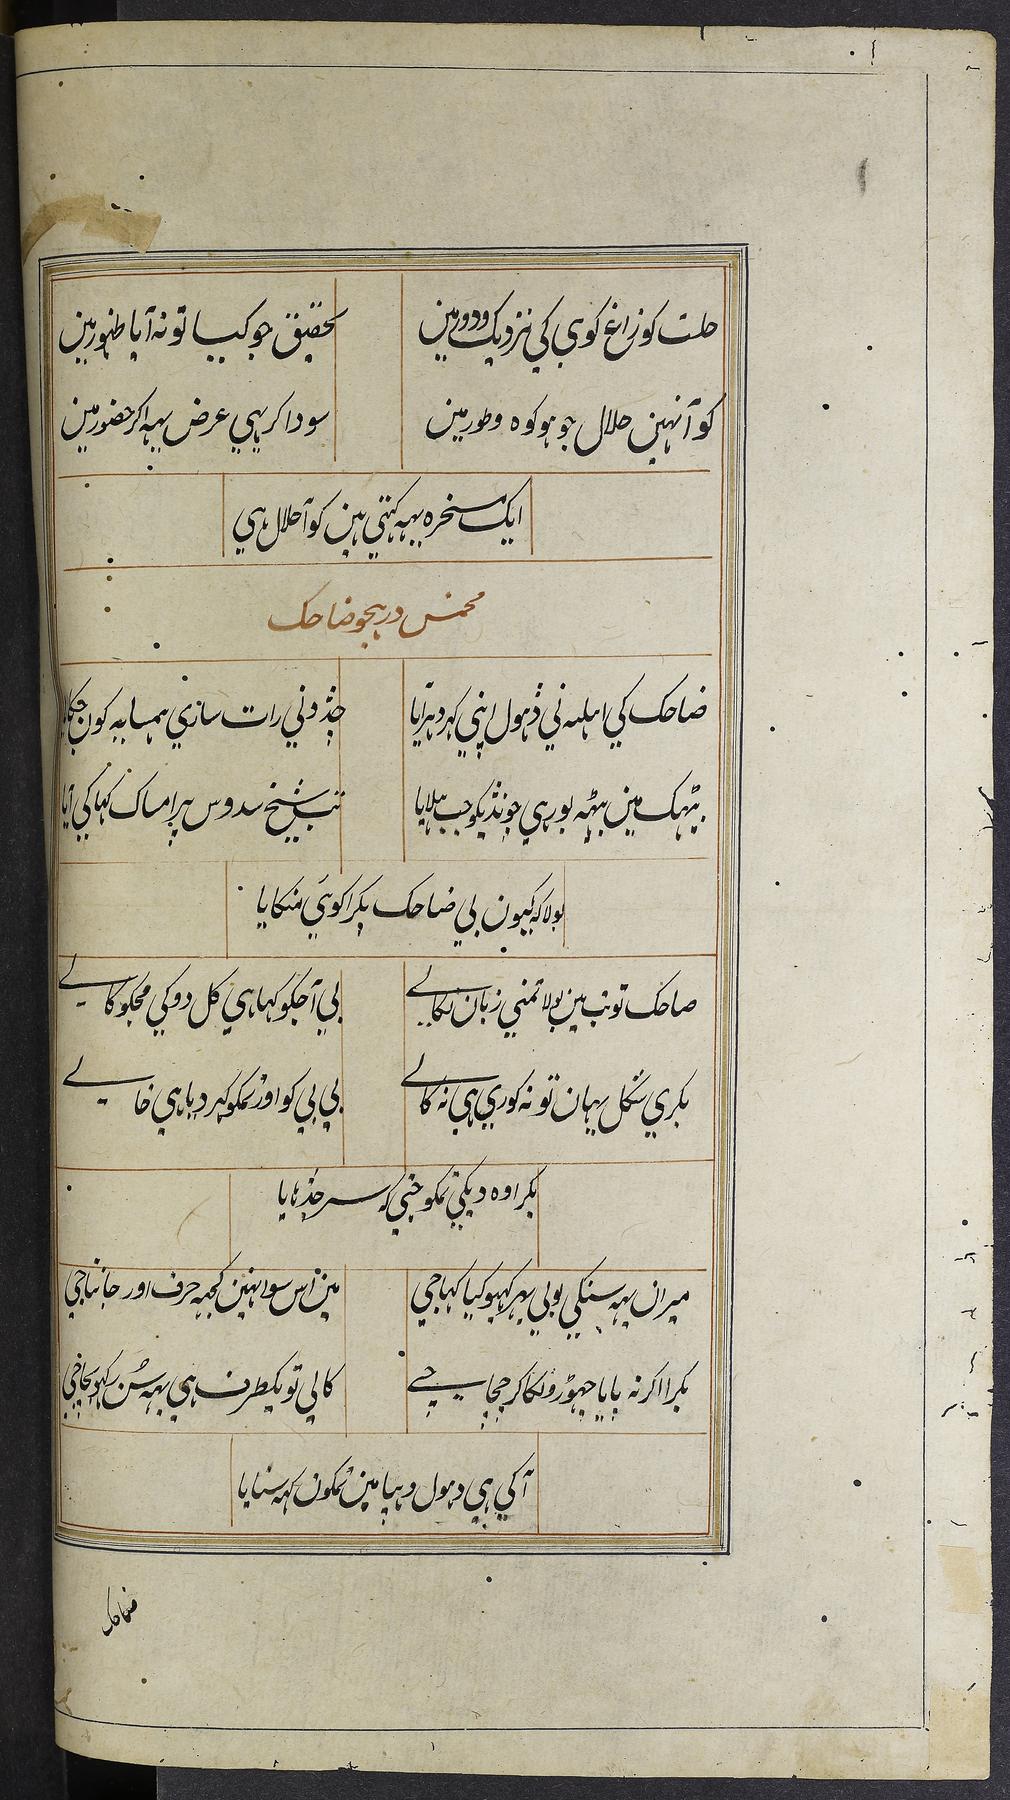 حلت کو زاغ کوہی کی نزدیک و دور مین
تحقیق جو کییا تو نہ آیا ظہور مین
کوّا نہین حلال جو ہو کوہ و طور مین
سودا کر یہی عرض یہہ اکر حضور مین
ایک مسخرہ یہہ کہتی ہین کوّا حلال ہی
مخمس در ہجو ضاحک
ضاحک کی اہلیہ نی ڈہول اپنی گہر دہرایا
نی رات ساری ہمسایہ کون جگایا
بیٹہک مین بیٹہہ بوڑہی چونڈیکو جب ہلایا
تب شیخ سدوس پر امساک کہا کی آیا
بولا کہ کیون بی ضاحک بکرا کوئی منگایا
ضاحک تو تب مین بولا تمنی زبان نکالے
بی آجکو کہا ہی کل دوکی مجکو گالے
بکری سگل یہان تو نہ گوری ہی نہ کالے
بی بی کو اور تمکو گہر دیا ہی خالے
بکرا وہ دیگی تمکو جنی کہ سر چڈہایا
میران یہہ سنکی بولی پہر کہیو کیا کہا جی
مین اس سوا نہین کجہہ حرف اور جانتا جی
بکرا اگر نہ پایا چہوڑونگا کر چچا چے
گالی تو یکطرف ہی یہہ سن رکہو
آگی ہی ڈہول دہپا مین تمکون کہہ سنایا
ضاحک